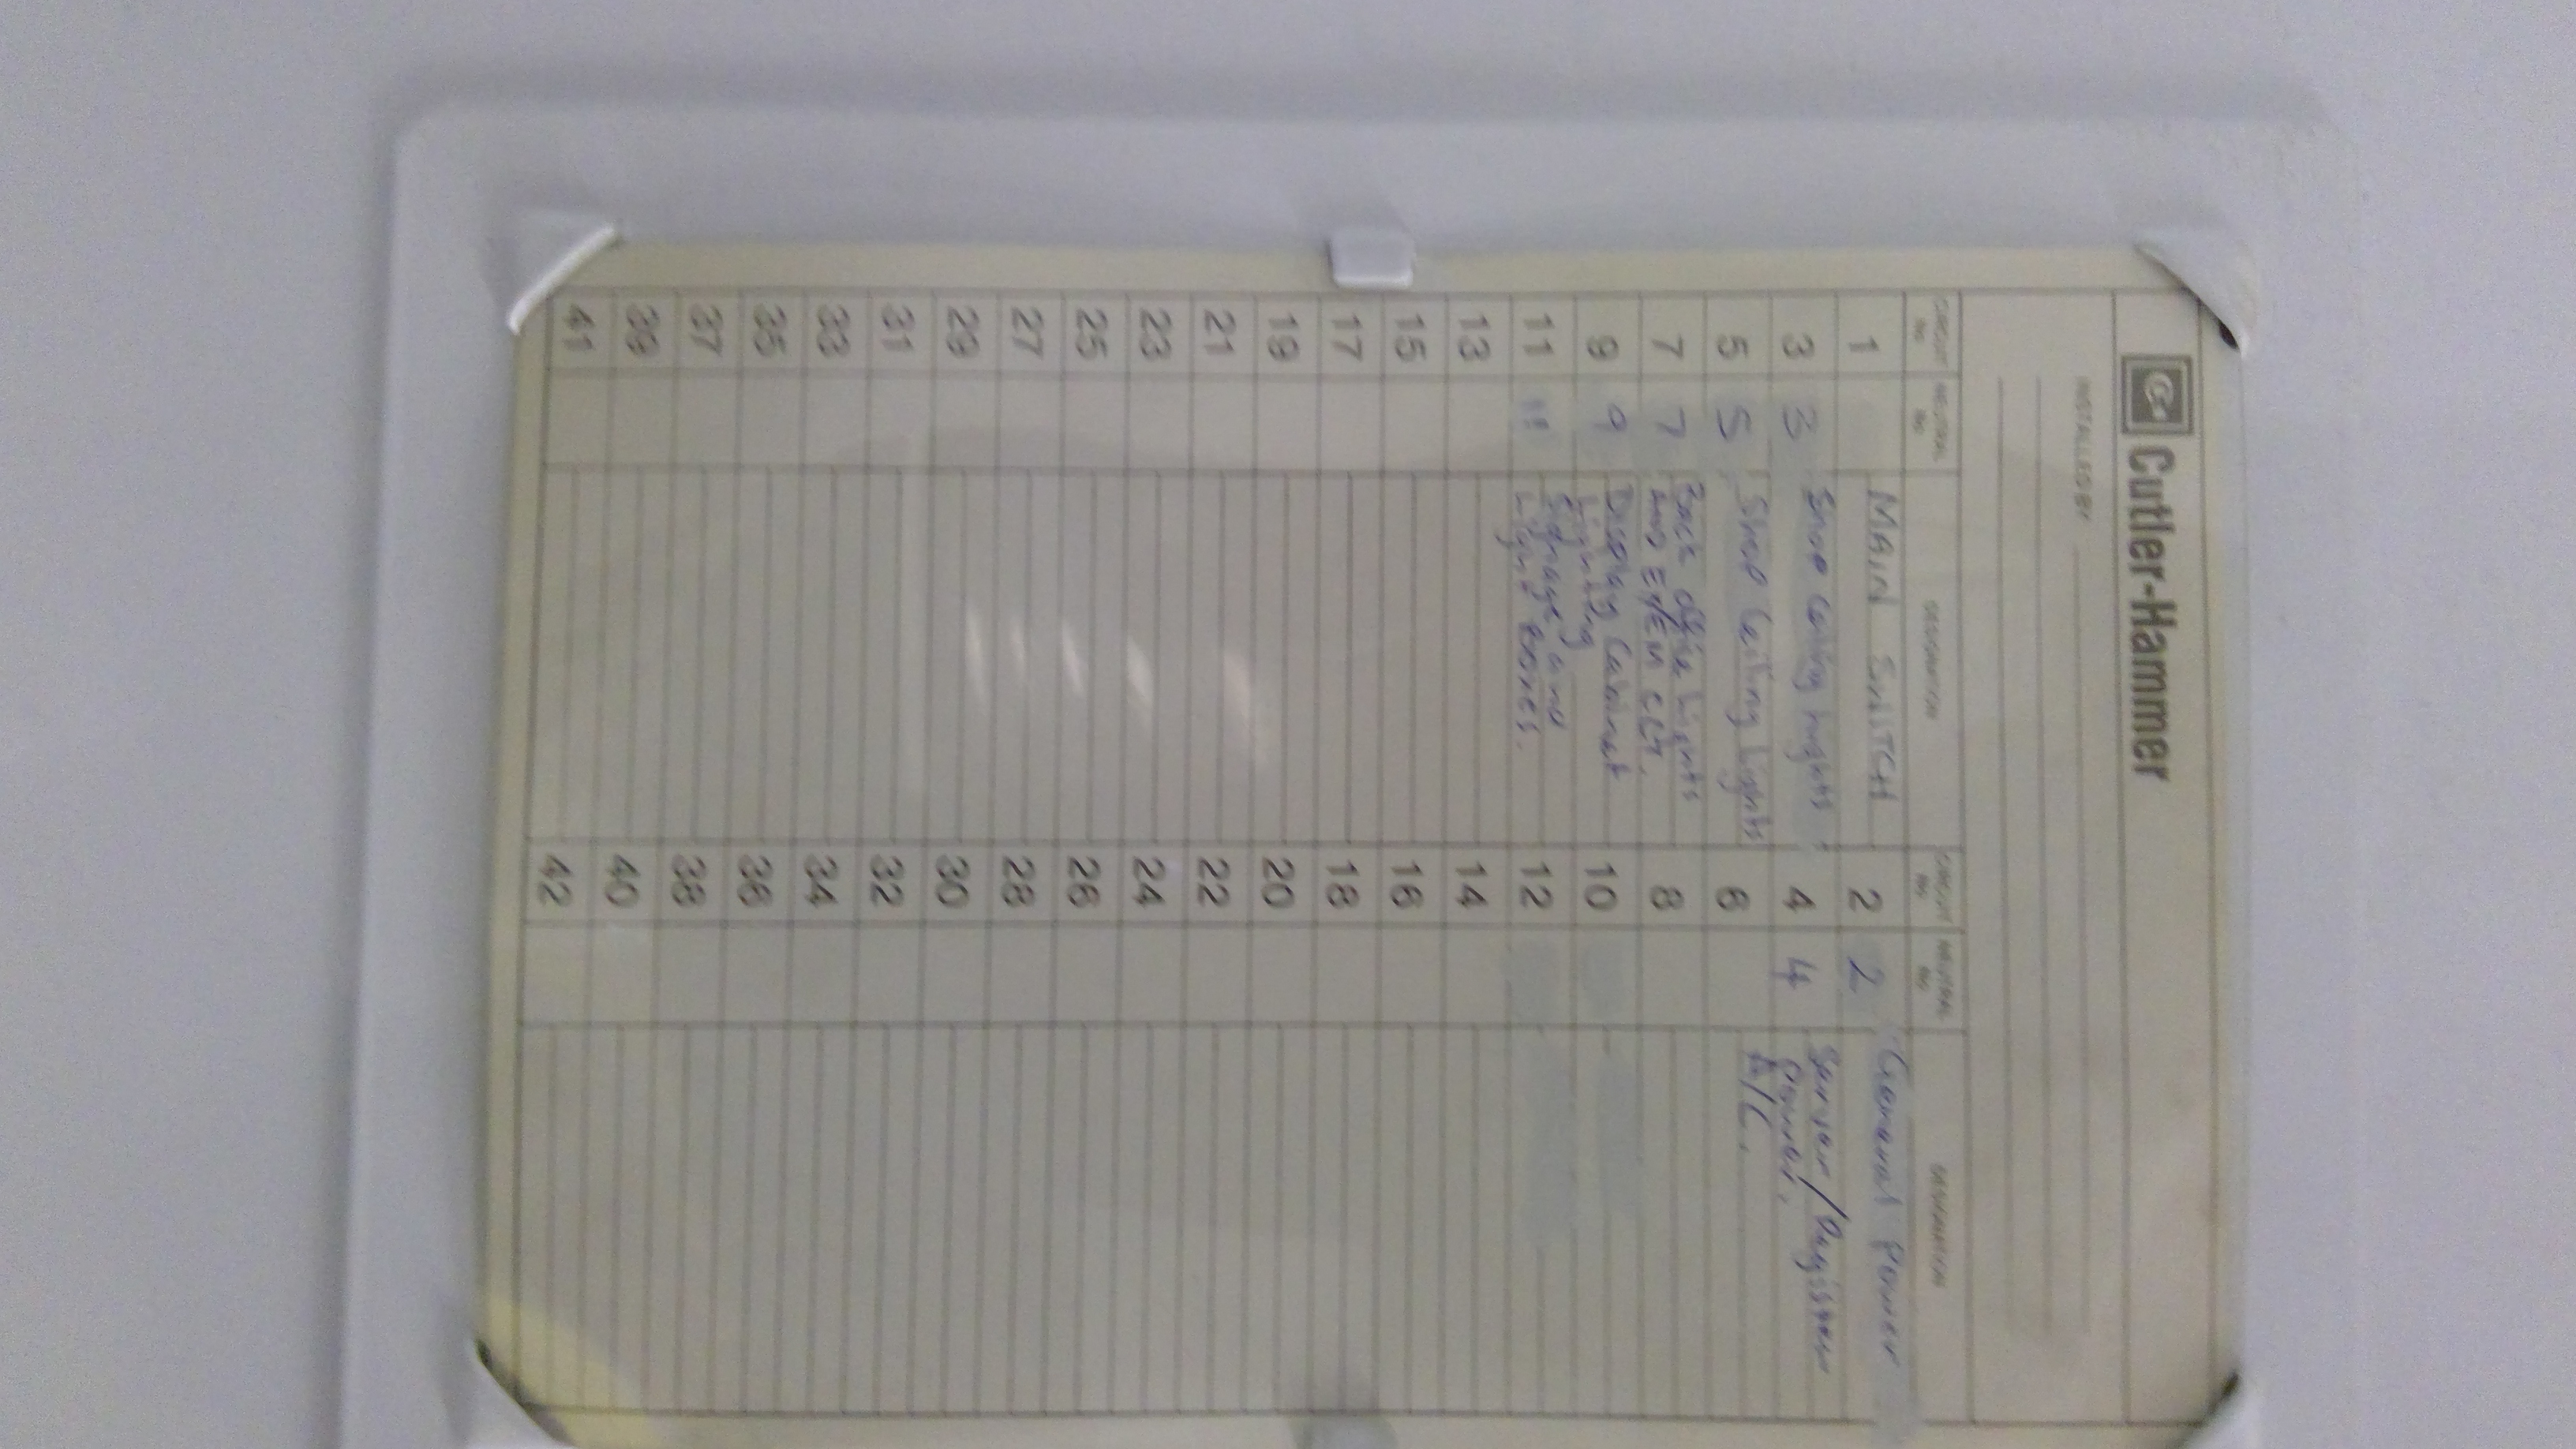 Cutler-Hammer
INSTALLED BY
CIRCUIT No NEUTRAL No DESIGNATION CIRCUIT No NEUTRAL No DESIGNATION
1 MAIN SWITCH 2 2 General Power
3 3 Shop Ceiling Lights 4 4 Server/Register
Power.
5 5 Shop Ceiling Lights 6 A/C.
7 7 Back office Lights 8
AND EX/EM CCT.
9 9 Display Cabinet 10
Lighting
11 11 Signage and 12
Light Boxes.
13 14
15 16
17 18
19 20
21 22
23 24
25 26
27 28
29 30
31 32
33 34
35 36
37 38
39 40
41 42